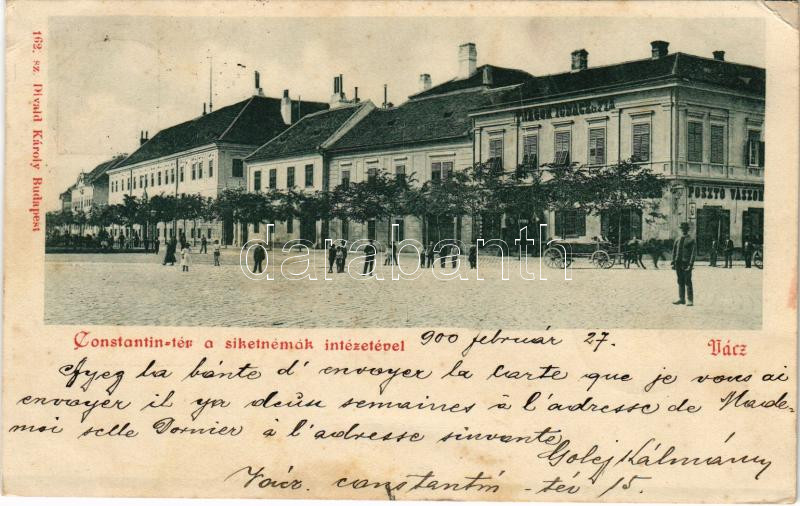 162. sz. Divald Károly Budapest
POSZTÓ VÁSZON
darabanth
Constantin-tér a siketnémák intézetével 900 február 27. Vácz
Ayez la bánte d' envoyer la carte que je vous ai
envoyer il ya deux semaines á l'adresse de Made-
moi selle Dornier á l'adresse sinvante
Golej Kálmány
Vácz. constantin - tér 15.